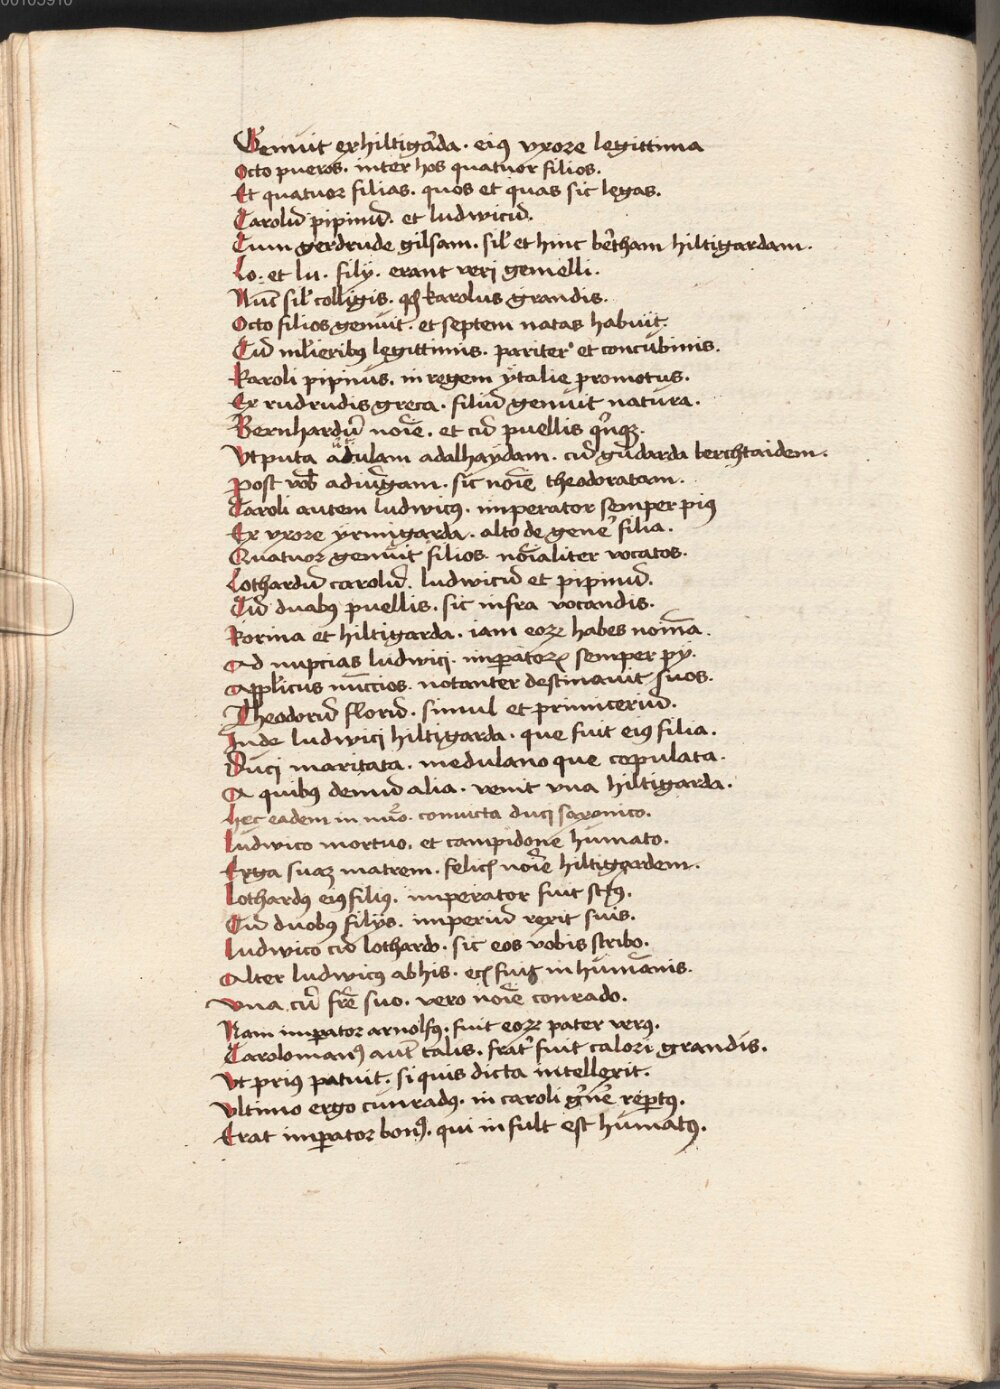 00105910
Genuit ex hiltigarda · eiꝰ vxore legittima
Octo pueros · inter hos quatuor filios.
Et quatuor filias. quos et quas sic legas.
Carolū pipinū. et ludwicū.
Cum gerdrude gilsam. sil̄ et hinc b̄tham hiltigardam.
Lo. et lu. filij. erant veri gemelli.
Nūc sil̄ colligis. qđ karolus grandis.
Octo filios genuit. et septem natas habuit.
Cū ml̄ieribꝰ legittimis. pariter et concubinis.
Karoli pipinus. in regem ytalie promotus.
Ex rudrudis greca. filiū genuit natura.
Bernhardū noīe. et cū puellis
Vtputa adulam adalhaydam. cū gūdarda berchtaidem.
Post vob̄ adiūgam. sic noīe theodoratam.
Caroli autem ludwicꝰ. imperator semper piꝰ
Ex vxore yrmigarda. alto de geñe filia.
Quatuor genuit filios. noīaliter vocatos.
Lothardū carolū. ludwicū et pipinū.
Cū duabꝰ puellis. sic infra vocandis.
Korina et hiltigarda. iam eoꝝ habes nomīa.
Ad nupcias ludwici. imꝑatoris semper py.
Applicus nuccios. notanter destinauit suos.
Theodorū florū. simul et primiceriū.
Inde ludwici hiltigarda. que fuit eiꝰ filia.
Duci maritata. medulano que copulata.
A quibꝰ demū alia. venit vna hiltigarda.
Hec eadem in convicta duci saxonico.
Ludwico mortuo. et campidone humato.
Erga suaꝫ matrem. felicē noīe hiltigardem.
Lothardꝰ eiꝰ filiꝰ. imperator fuit
Cū duobꝰ filijs. imperiū rexit suis.
Ludwico cū lothardo. sic eos vobis scribo.
Alter ludwicꝰ ab his. fuit in humanis.
Vna cū frē suo. vero noīe conrado.
Nam imꝑator arnolfꝰ. fuit eoꝝ pater verꝰ.
Carolomanꝰ aut̄ talis. frat̄ fuit calori grandis.
Vt priꝰ patuit. si quis dicta intellexit.
Vltimo ergo cunradꝰ. in caroli geñe reꝑtꝰ.
Erat imꝑator bonꝰ. qui in fult est humatꝰ.